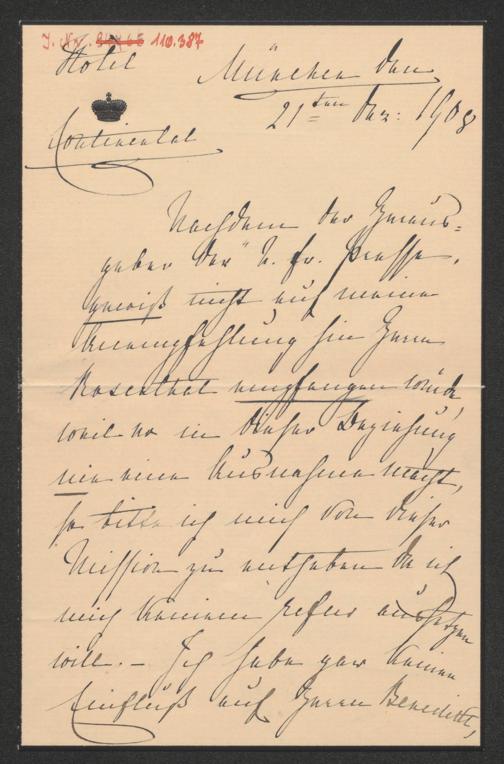 J. Nr. 110.387
Hotel
Continental
München den
21ten Dez: 1908
Nachdem der Heraus-
geber der "N. fr. Presse"
gewiß nicht auf meine
Anempfehlung hin Herrn
Rosenthal empfangen würde,
weil er in dieser Beziehung
nie eine Ausnahme macht,
so bitte ich mich von dieser
Mission zu entheben da ich
mich keinem refus aussetzen
will. – Ich habe gar keinen
Einfluß auf Herrn Benedikt,